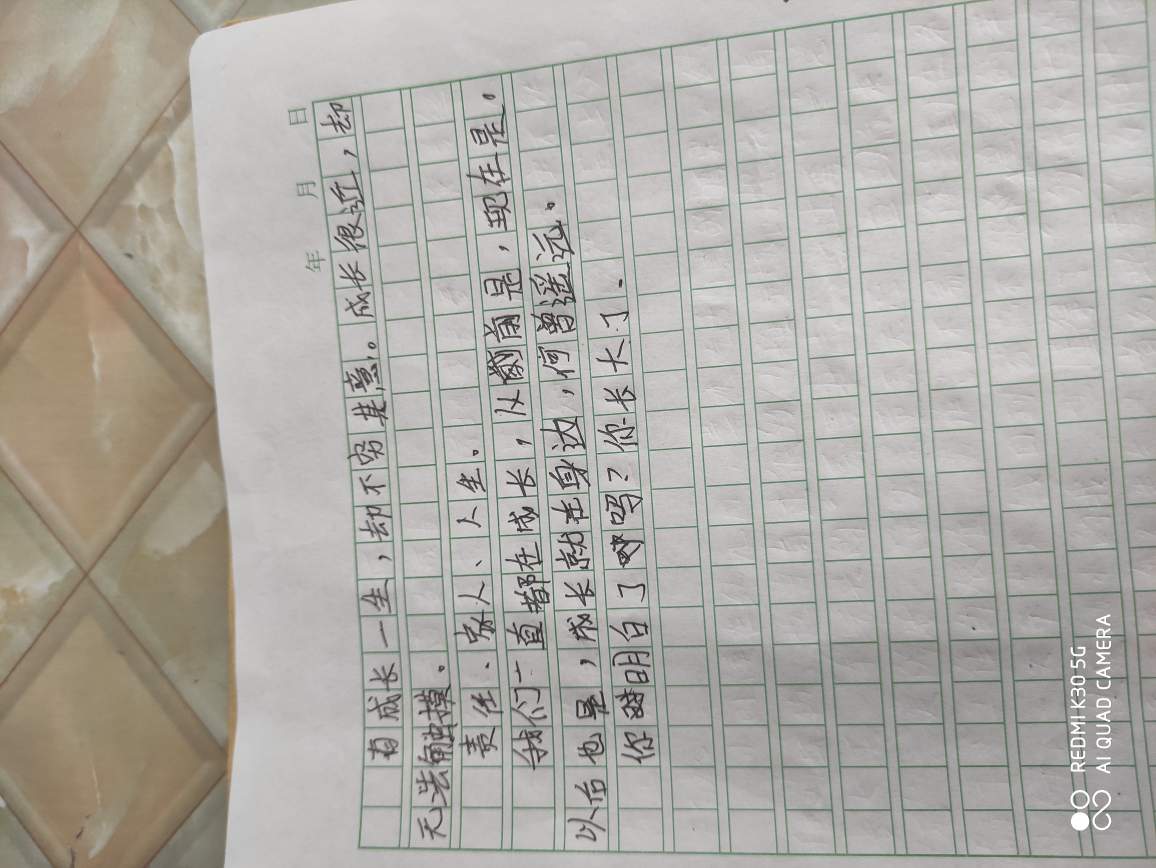 年 月 日
有成长一生,却不穷其意。成长很近,却
无法触摸。
责任、家人、人生。
我们一直都在成长,从前是,现在是。
以后也是,成长就在身边,何曾遥远。
你明白了吗?你长大了。
REDMI K30 5G
AI QUAD CAMERA